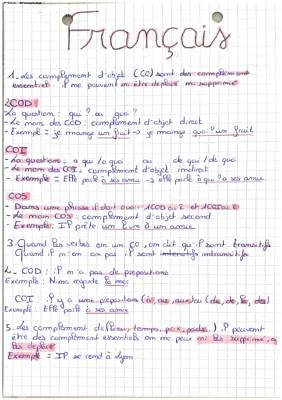 Français
1. Les complément d'objet (CO) sont des complément
essentiel il ne peuvent ni être déplacé ni supprimé
COD:
La question : qui ? ou quoi ?
- Le nom des COD : complément d'objet direct
- Exemple = je mange un fruit → je mange quoi ? un fruit
COI
- La question, a qui / a quoi ou de qui / de quoi
- Le nom des COI, complément d'objet indirect
- Exemple = Elle parle à ses amis → Elle parle à qui ? a ses amis
COS
- Dans une phrase il doit avoir 1 COD ou 2 et 1 COI ou 2
- Le nom COS : complément d'objet second
- Exemple Il prête un livre à un ami
3. Quand les verbes on un CO, on dit qu'il sont transitifs
Quand il n'en on pas il sont intransitifs
4. COD : il n'a pas de prepositions
Exemple : Nima regarde la mer
COI : il y a une prepositions (à, au, aux) ou (du, de, la, des)
Exemple : Elle parle à ses amis
5. Les complément de (lieu, temps, ), il peuvent
être des complément essentiels on ne peux ni les supprimé, ni
les déplacé
Exemple = Il se rend à Lyon